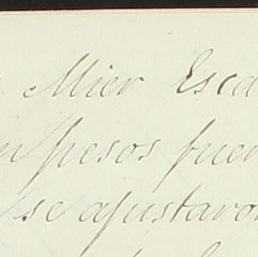 Mier Esca
pesos fuer
se ajustaron